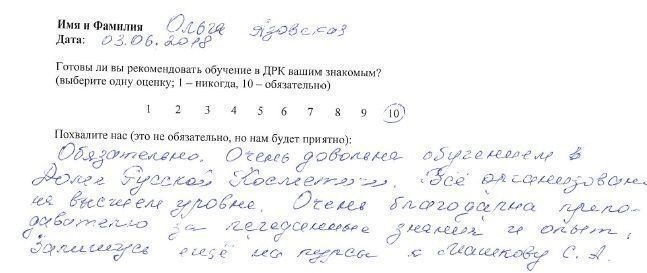 Имя и Фамилия Ольга Язовская
Дата: 03.06.2018
Готовы ли вы рекомендовать обучение в ДРК вашим знакомым?
(выберите одну оценку; 1 – никогда, 10 – обязательно)
1 2 3 4 5 6 7 8 9 10
Похвалите нас (это не обязательно, но нам будет приятно):
Обязательно. Очень довольна обучением в
Доме Русской Косметики. Всё организован
на высшем уровне. Очень благодарна препо-
давателю за переданные знания и опыт.
Запишусь ещё на курсы к Машкову С. А.